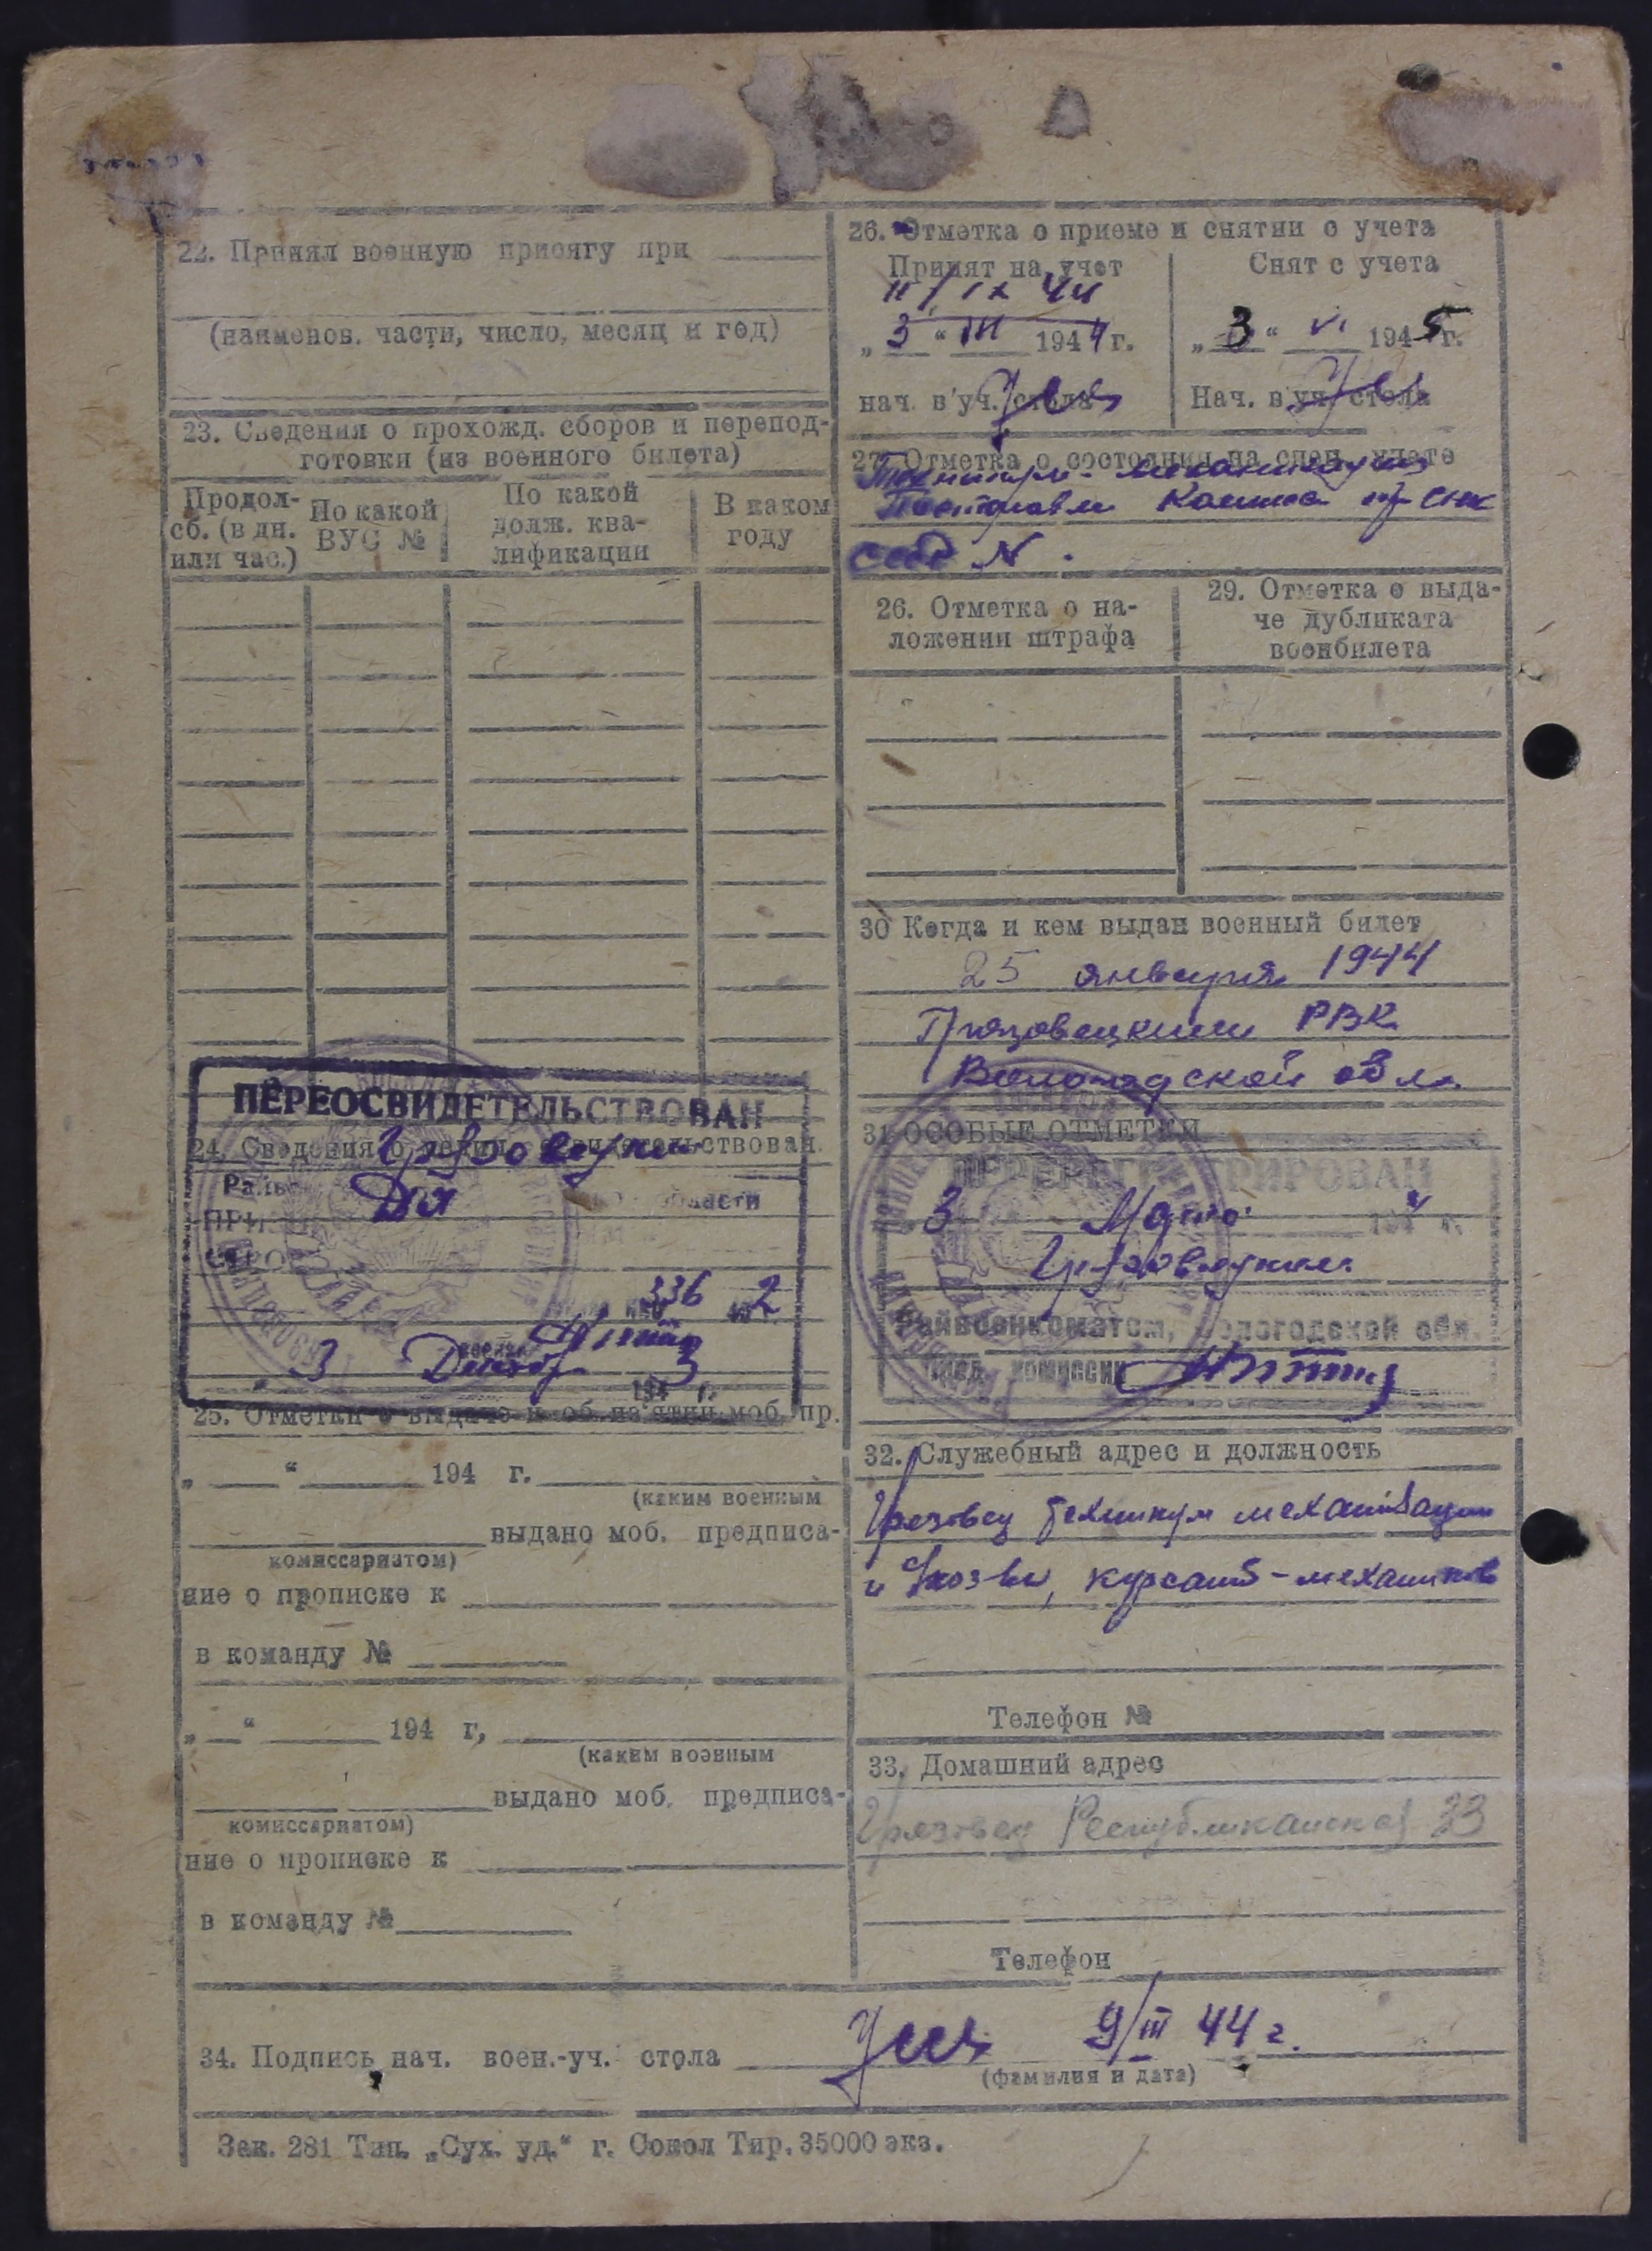 22. Принял военную присягу при
(наименов. части, число, месяц и год)
23. Сведения о прохожд. сборов и перепод-
готовки (из военного билета)
Продол-
сб. (в дн.
или час.)
По какой
ВУС №
По какой
долж. ква-
лификации
В каком
году
ПЕРЕОСВИДЕТЕЛЬСТВОВАН
24. Сведения
336 2
3 3
194 г.
25. Отметки о выдаче и об из'ятии моб. пр.
„ “ 194 г.
(каким военным
выдано моб. предписа-
комиссариатом)
ние о прописке к
в команду №
„ “ 194 г,
(каким военным
выдано моб. предписа-
комиссариатом)
ние о прописке к
в команду №
26. Отметка о приеме и снятии с учета
Принят на учет
11/IX 44
„3“ III 1944 г.
нач. в уч. стола
Снят с учета
„3“ VI 1945 г.
Нач. в уч. стола
27. Отметка о состоянии на спец. учете
26. Отметка о на-
ложении штрафа
29. Отметка о выда-
че дубликата
военбилета
30 Когда и кем выдан военный билет
25 января 1944
Грязовецким РВК
Вологодской обл.
31 ОСОБЫЕ ОТМЕТКИ
ПЕРЕРЕГИСТРИРОВАН
3 Марта 1944 г.
Грязовецким
Райвоенкоматом, Вологодской обл.
комиссии
32. Служебный адрес и должность
Грязовец техникум механизации
курсант-механиков
Телефон №
33. Домашний адрес
Грязовец Республиканская 33
Телефон
34. Подпись нач. воен.-уч. стола 9/III 44 г.
(фамилия и дата)
Зак. 281 Тип. „Сух. уд.“ г. Сокол Тир. 35000 экз.